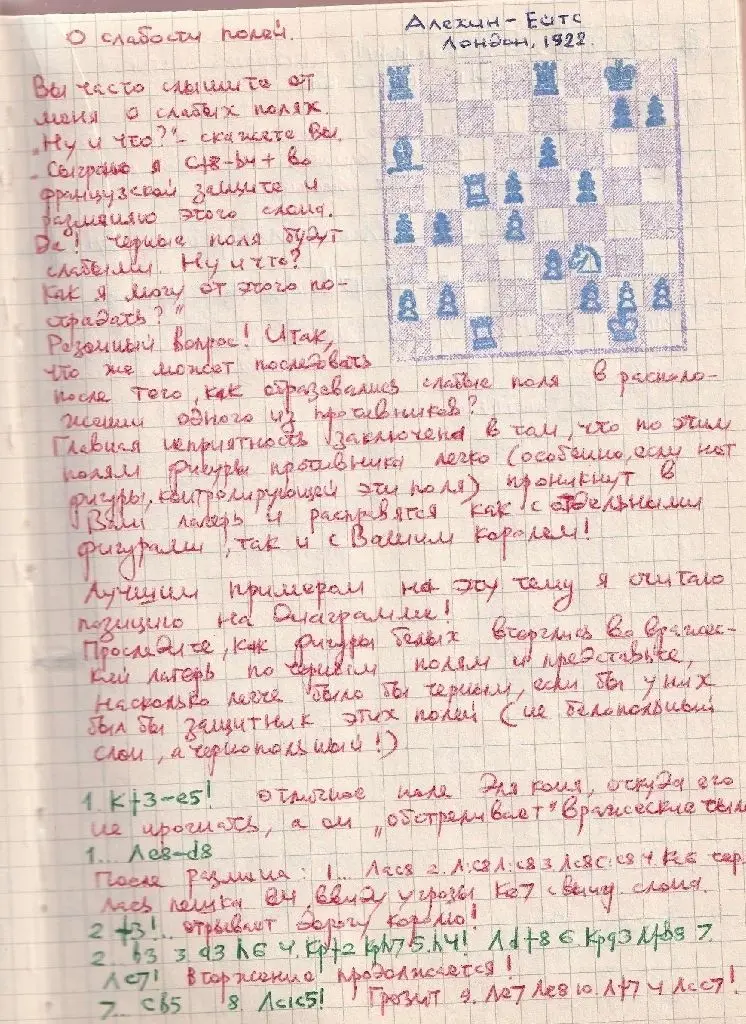 О слабости полей.
Алехин - Ейтс
Лондон, 1922.
Вы часто слышите от
меня о слабых полях.
„Ну и что?" - скажете Вы.
- Сыграно я Cf8-b4+ во
французской защите и
разменяю этого слона.
Да! Черные поля будут
слабыми. Ну и что?
Как я могу от этого по-
страдать?"
Разумный вопрос! Итак,
что же может последовать
после того, как образовались слабые поля в располо-
жении одного из противников?
Главная неприятность заключена в том, что по этим
полям фигуры противника легко (особенно, если нет
фигуры, контролирующей эти поля) проникнут в
Ваш лагерь и расправятся как с отдельными
фигурами, так и с Вашим королем!
Лучшим примером на эту тему я считаю
позицию на диаграмме!
Проследите, как фигуры белых вторглись во вражес-
кий лагерь по черным полям и представьте,
насколько легче было бы черным, если бы у них
был бы защитник этих полей (не белопольный
слон, а чернопольный!)
1. Kf3-e5! отличное поле для коня, откуда его
не прогнать, а он „обстреливает" вражеские тылы
1... Лe8-d8
После размена: 1... Лac8 2. Л:c8 Л:c8 3 Л:c8 C:c8 4 Kc6 тер-
лась пешка b4, ввиду угрозы Ke7 с выигр слона.
2 f3!.. открывает дорогу королю!
2.. b3 3 a3 h6 4. Kpf2 Kph7 5. h4! Лdf8 6 Kpg3 Лfb8 7.
Лc7! вторжение продолжается!
7... Cb5 8. Лc1c5! Грозит 9. Лe7 Лe8 10. Лf7 и Лcc7!